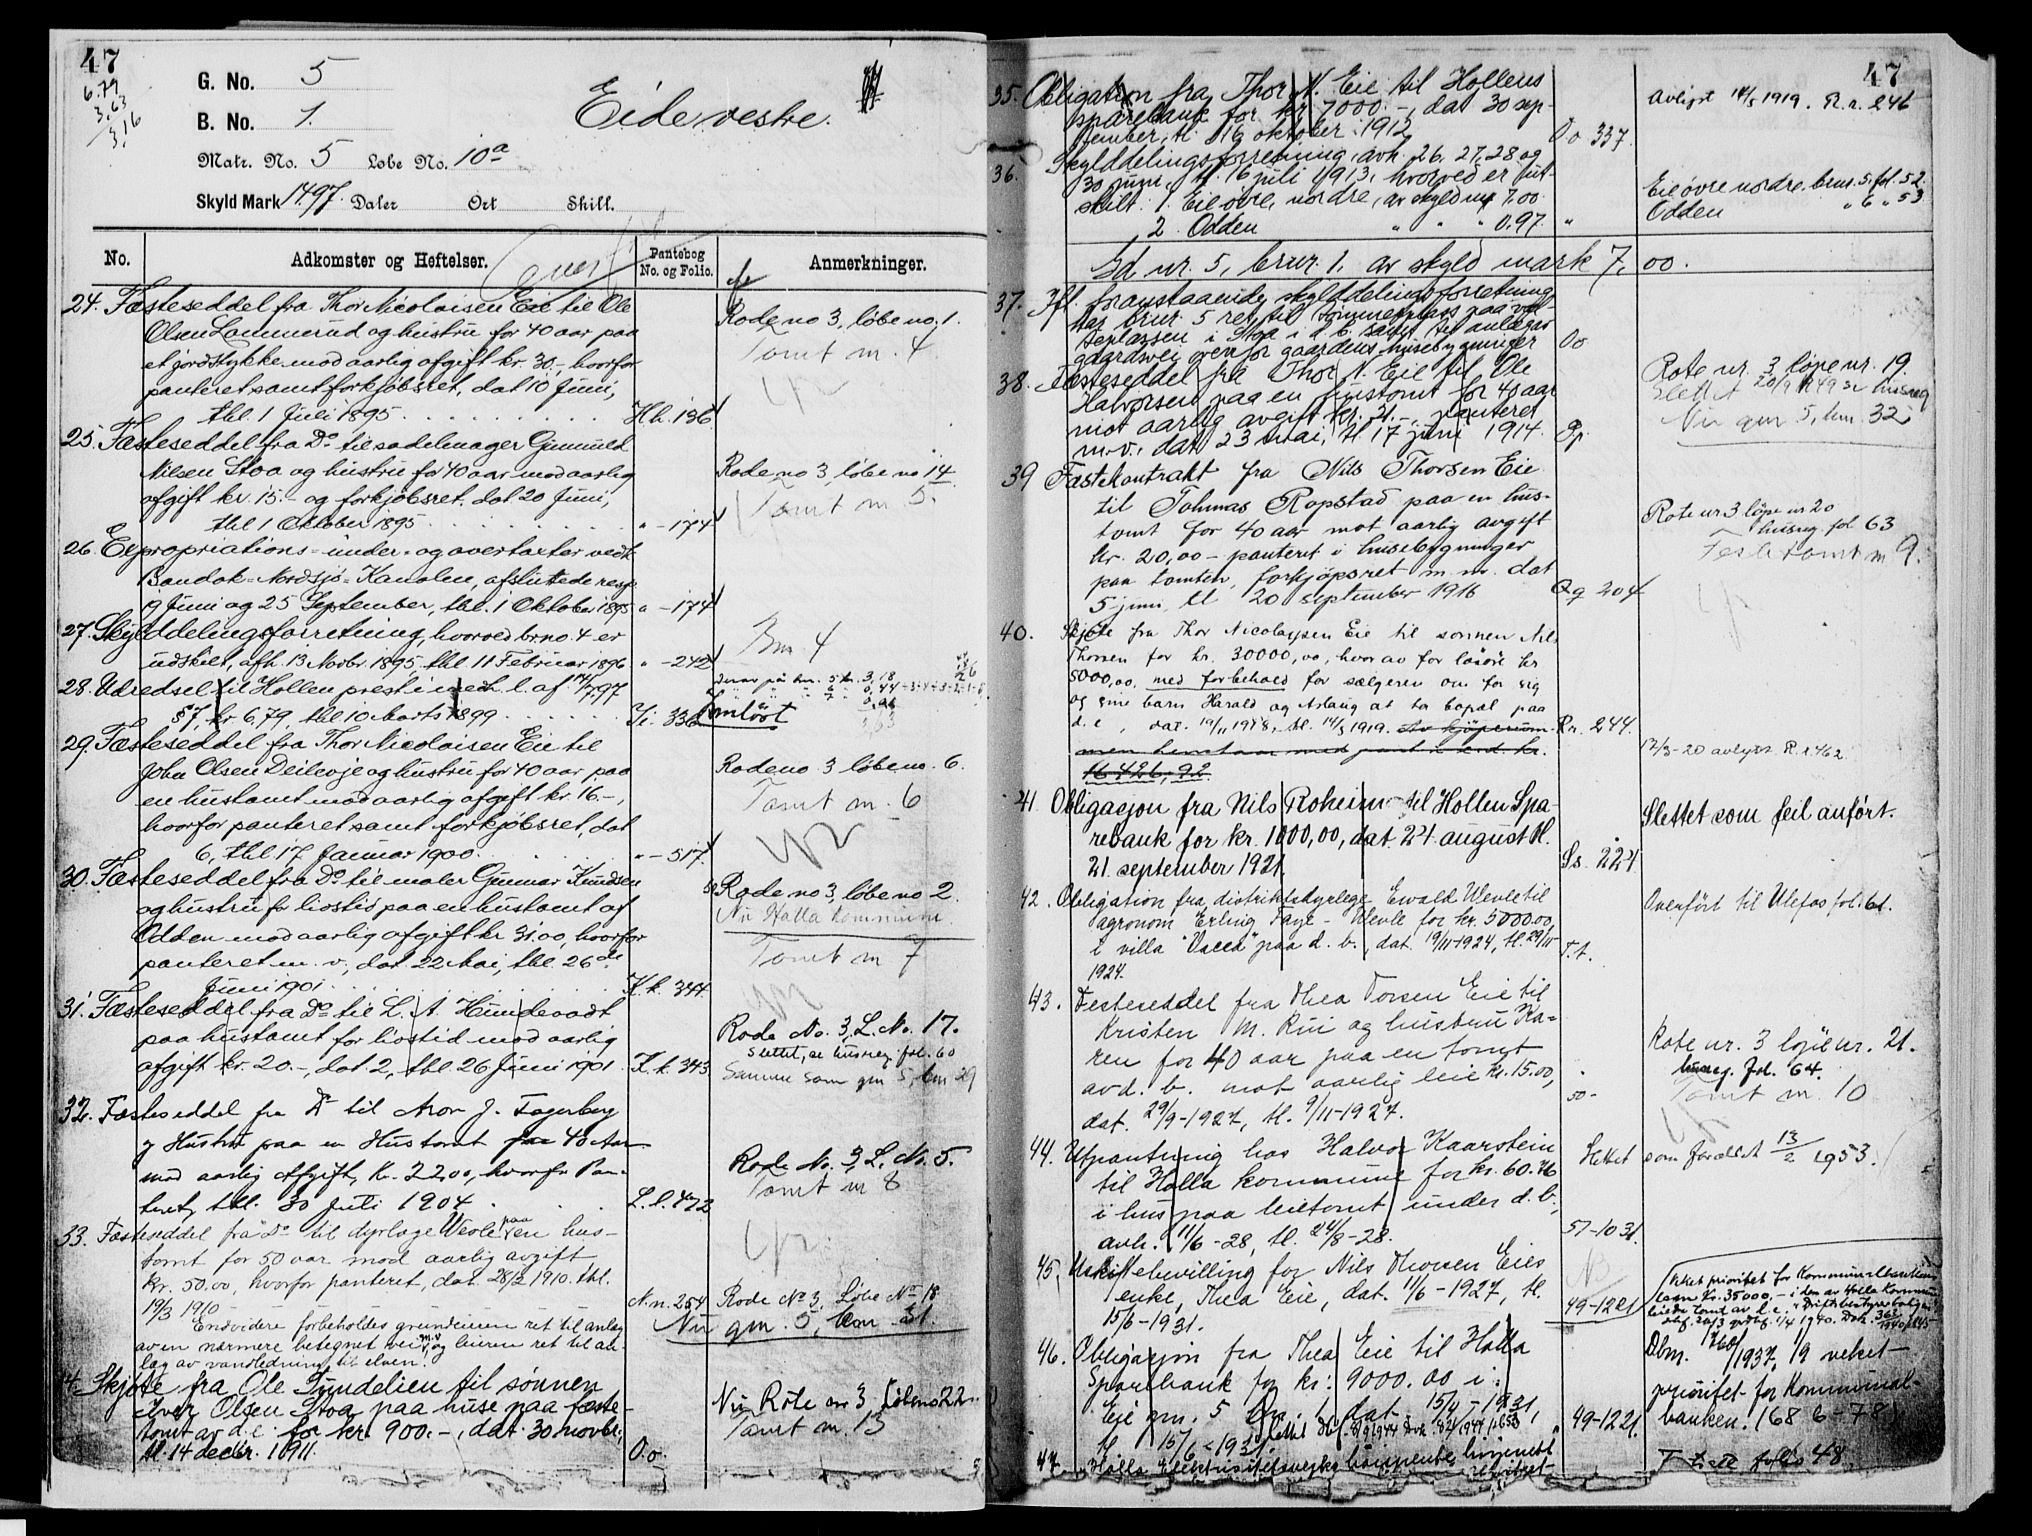 47
6.79
3.63
3.16
G. No. 5
B. No. 1.
Eide vestre.
Matr. No. 5 Løbe No. 10a
Skyld Mark 14.97. Daler Ort Skill.
No.
Adkomster og Heftelser.
Pantebog No. og Folio.
Anmerkninger.
24. Fæsteseddel fra Thor Nicolaisen Eie til Ole
Olsen Lammerud og hustru for 40 aar paa
et jordstykke mod aarlig afgift kr. 30,-, hvorfor
panteret samt forkjøbsret, dat 10 Juni,
thl. 1 Juli 1895. Hh. 136
Rode no 3, løbe no. 1.
Tomt nr. 4.
25. Fæsteseddel fra Do til sadelmager Gunnuld
Nilsen Stoa og hustru for 40 aar mod aarlig
afgift kr. 15.- og forkjøbsret, dat 20 Juni,
thl 1 Oktober 1895 " - 174
Rode no 3, løbe no 14
Tomt nr 5.
26. Expropriations- under- og overtaxter vedk.
Bandak-Nordsjø-Kanalen, afsluttede resp.
19 Juni og 25 September, thl. 1 Oktober 1895 " - 174
27. Skylddelingsforretning, hvorved brno. 4 er
udskilt, afh. 13 Novbr. 1895, thl 11 Februar 1896 " - 242
Bnr 4
28. Udredsel til Hollen prest i medh. l. af 14/7 97
§7, kr 6,79, thl 10 Marts 1899 Ii. 336
Innløst
29. Fæsteseddel fra Thor Nicolaisen Eie til
John Olsen Deilevje og hustru for 40 aar paa
en hustomt mod aarlig afgift kr. 16.-,
hvorfor panteret samt forkjøbsret, dat
6, thl 17 Januar 1900. " - 517.
Rode no 3 løbe no. 6.
Tomt nr. 6
30. Fæsteseddel fra Do til maler Gunnar Knudsen
og hustru for livstid paa en hustomt af
Odden mod aarlig afgift kr 31.00, hvorfor
panteret m. v., dat 22 Mai, thl. 26de
Juni 1901. K.k. 344
Rode no 3, løbe no 2.
Nu Holla kommune.
Tomt nr 7
31. Fæsteseddel fra Do til L. A. Hundevadt
paa hustomt for livstid mod aarlig
afgift kr. 20.-, dat. 2, thl 26 Juni 1901 K.k. 343
Rode No. 3, L. No. 17.
Slettet, se husreg. fol. 60
Samme som gnr 5, bnr 29
32. Fæsteseddel fra Do til Aron J. Fagerberg
og Hustru paa en Hustomt paa 40 Aar
mod aarlig Afgift, Kr. 22,00, hvorfor Pan-
teret, thl. 30 Juli 1904. L.l. 472
Rode No. 3, L. No. 5.
Tomt nr 8
33. Fæsteseddel fra Do til dyrlæge Wevle paa en hus-
tomt for 50 aar mod aarlig avgift
kr. 50.00, hvorfor panteret, dat. 28/2 1910. thl.
19/3 1910 N.n. 254
Endvidere forbeholdes grundeieren ret til anlæg
av en nærmere betegnet vei m.v. og leieren ret til an-
læg av vandledning til elven.
Rode No 3, Løbe No 18
Nu gnr. 5, bnr 31.
34. Skjøte fra Ole Sundelien til sønnen
Iver Olsen Stoa paa huse paa fæste-
tomt av d. e. for kr. 900.-, dat. 30 novbr.,
tl. 14 decbr. 1911. O.o.
Nu Rote nr 3, løbeno 22.
Tomt nr. 13
47
35. Obligation fra Thor N. Eie til Hollens
sparebank for kr 7000.-, dat 30 sep-
tember, tl. 16 oktober 1912 Oo 337.
Avlyst 14/5 1919. R.r. 246
36. Skylddelingsforretning, avh. 26, 27, 28 og
30 juni, tl 16 juli 1913, hvorved er ut-
skilt: 1. Eie øvre, nordre, av skyld mk 7.00.
2. Odden " " " 0.97. "
Eie øvre nordre, brnr. 5, fol. 52.
Odden " 6 " 53
Gd. nr. 5, brnr. 1, av skyld mark 7,00.
37. Ifl. foranstaaende skylddelingsforretning
har brnr. 5 ret til tømmerplass paa vel-
teplassen i Stoa i d. b. samt til anlæg av
gaardsvei ovenfor gaardens husebygninger Oo
38. Fæsteseddel fra Thor N. Eie til Ole
Halvorsen paa en hustomt for 40 aar
mot aarlig avgift kr. 21.-, panteret
m.v., dat 23 mai, tl 17 juni 1914. Pp.
Rote nr. 3 løpe nr. 19.
Slettet 20/9 1949 se husreg
Nu gnr 5, bnr. 32
39 Fæstekontrakt fra Nils Thorsen Eie
til Tohmas Ropstad paa en hus-
tomt for 40 aar mot aarlig avgift
kr. 20,00 - panteret i husebygninger
paa tomten, forkjøpsret m. m. dat
5 juni, tl 20 september 1916 Qq 204
Rote nr 3 løpe nr 20
husreg. fol 63
Festetomt nr 9.
40. Skjøte fra Thor Nicolaysen Eie til sønnen Nils
Thorsen for kr. 30000,00, hvor av for løsøre kr
5000,00, med forbehold for sælgeren om for sig
og sine barn Harald og Aslaug at ha bopæl paa
d. e., dat. 19/11 1918, tl. 14/5 1919. Av kjøpesum- Rr. 244.
men henstaar med pant i end. kr.
16 426,92.
12/3-20 avlyst. R.r 462
41. Obligasjon fra Nils Roheim til Hollen Spa-
rebank for kr. 1000,00, dat 24 august tl.
21. september 1921. Ss. 224
Slettet som feil anført.
42. Obligation fra distriktsdyrlege Ewald Wevle til
agronom Erling Faye-Wevle for kr. 5000.00,
i villa "Vacca" paa d. b., dat. 19/11-1924, tl. 29/11-
1924. T.t.
Overført til Ulefos fol. 61.
43. Festeseddel fra Thea Torsen Eie til
Kristen M. Rui og hustru Ka-
ren for 40 aar paa en tomt
av d. b. mot aarlig leie kr. 15.00,
dat. 29/9-1927, tl. 9/11-1927. 50-
Rote nr. 3 løpe nr. 21.
husreg. fol. 64.
Tomt nr. 10
44. Utpantning hos Halvor Kaarstein
til Holla kommune for kr. 60.76
i hus paa leietomt under d. b.,
avh. 11/6-28, tl. 24/8-28. 57-1031.
Slettet som foreldet 13/2 1953.
45. Uskiftebevilling for Nils Thorsen Eies
enke, Thea Eie, dat. 11/6-1927, tl.
15/6-1931. 49-1221
46. Obligasjon fra Thea Eie til Holla
Sparebank for kr: 9000.00 i:
Eie gnr. 5 bnr. 1, dat. 15/4-1931,
tl 15/6-1931. 49-1221.
Dbnr. 1760/1937, 1/9 veket
prioritet for Kommunal-
banken. (68 6-78)
47. Holla Elektrisitetsverks
T til folio 48